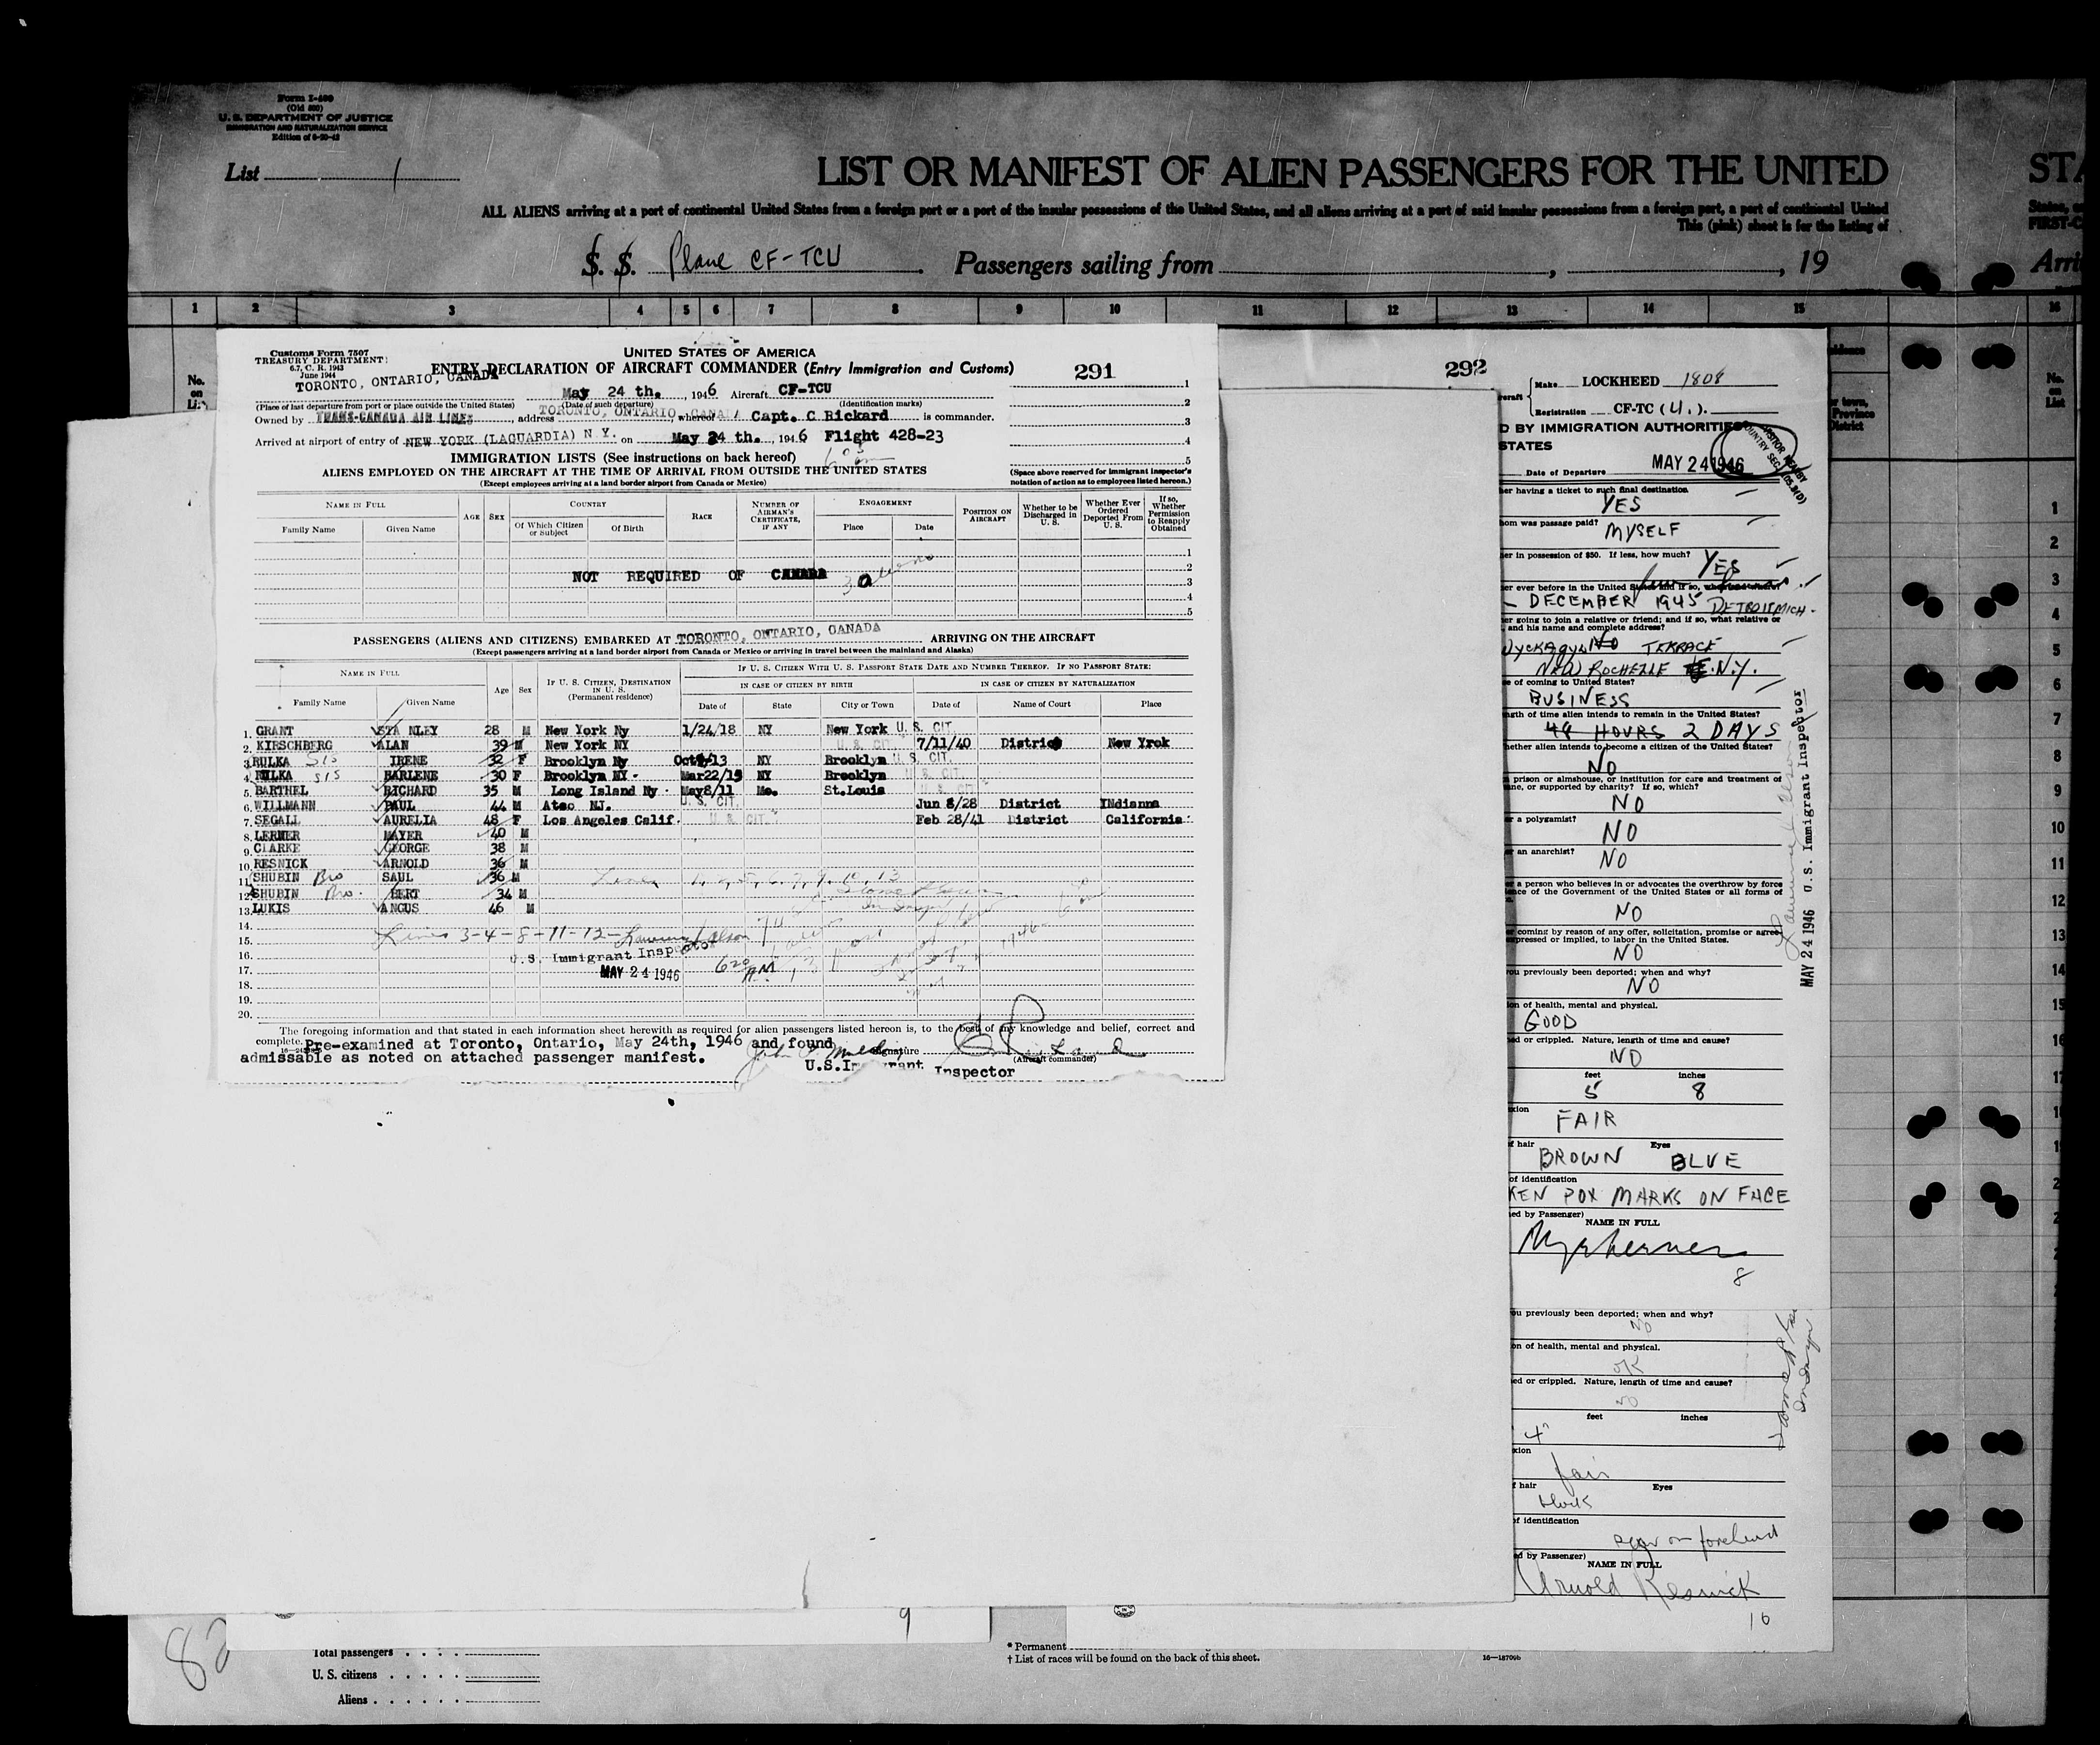 Form I-400
(Old 500)
U. S. DEPARTMENT OF JUSTICE
IMMIGRATION AND NATURALIZATION SERVICE
List 1
LIST OR MANIFEST OF ALIEN PASSENGERS FOR THE UNITED
STA
ALL ALIENS arriving at a port of continental United States from a foreign port or a port of the insular possessions of the United States, and all aliens arriving at a port of said insular possessions from a foreign port, a port of continental United
This (pink) sheet is for the listing of
FIRST-C
S. S. Plane CF-TCU Passengers sailing from , , 19
Arri
1 2 3 4 5 6 7 8 9 10 11 12 13 14 15 16
No.
on
Customs Form 7507
TREASURY DEPARTMENT
6.7, C. R. 1943
June 1944
UNITED STATES OF AMERICA
ENTRY DECLARATION OF AIRCRAFT COMMANDER (Entry Immigration and Customs) 291
TORONTO, ONTARIO, CANADA May 24 th. , 1946 Aircraft CF-TCU
(Place of last departure from port or place outside the United States) (Date of such departure) (Identification marks)
Owned by TRANS-CANADA AIR LINES, address TORONTO, ONTARIO, CANADA whereof Capt. C Rickard is commander.
Arrived at airport of entry of NEW YORK (LAGUARDIA) N Y. on May 24 th. , 1946 Flight 428-23
IMMIGRATION LISTS (See instructions on back hereof)
ALIENS EMPLOYED ON THE AIRCRAFT AT THE TIME OF ARRIVAL FROM OUTSIDE THE UNITED STATES
(Except employees arriving at a land border airport from Canada or Mexico)
1
2
3
4
5
(Space above reserved for immigrant inspector's
notation of action as to employees listed hereon.)
NAME IN FULL
Family Name Given Name
AGE SEX
COUNTRY
Of Which Citizen or Subject Of Birth
RACE
NUMBER OF AIRMAN'S CERTIFICATE, IF ANY
ENGAGEMENT
Place Date
POSITION ON AIRCRAFT
Whether to be Discharged in U. S.
Whether Ever Ordered Deported From U. S.
If so, Whether Permission to Reapply Obtained
1
2
NOT REQUIRED OF CANADA
3
4
5
PASSENGERS (ALIENS AND CITIZENS) EMBARKED AT TORONTO, ONTARIO, CANADA ARRIVING ON THE AIRCRAFT
(Except passengers arriving at a land border airport from Canada or Mexico or arriving in travel between the mainland and Alaska)
NAME IN FULL
Family Name Given Name
Age Sex
IF U. S. CITIZEN, DESTINATION IN U. S.
(Permanent residence)
IF U. S. CITIZEN WITH U. S. PASSPORT STATE DATE AND NUMBER THEREOF. IF NO PASSPORT STATE:
IN CASE OF CITIZEN BY BIRTH IN CASE OF CITIZEN BY NATURALIZATION
Date of State City or Town Date of Name of Court Place
1. GRANT STA NLEY 28 M New York Ny 1/24/18 NY New York U. S. CIT.
2. KIRSCHBERG ALAN 39 M New York NY U. S. CIT. 7/11/40 District New Yrok
3. RULKA SIS IRENE 32 F Brooklyn Ny NY Brooklyn U. S. CIT.
4. RULKA SIS EARLENE 30 F Brooklyn NY. Mar22/15 NY Brooklyn U. S. CIT.
5. BARTHEL RICHARD 35 M Long Island Ny May8/11 Mo. St.Louis
6. WILLMANN PAUL 44 M Atco NJ. U. S. CIT. Jun 8/28 District INdianna
7. SEGALL AURELIA 48 F Los Angeles Calif. U. S. CIT. Feb 28/41 District California
8. LERMER MAYER 40 M
9. CLARKE GEORGE 38 M
10. RESNICK ARNOLD 36 M
11. SHUBIN Bro SAUL 36 M
12. SHUBIN Bro. BERT 34 M
13. LUKIS ANGUS 46 M
14.
15. Lines 3-4-8-11-12-
16. U.S. Immigrant Inspector
17. MAY 24 1946 620 AM
18.
19.
20.
The foregoing information and that stated in each information sheet herewith as required for alien passengers listed hereon is, to the best of my knowledge and belief, correct and
complete. Pre-examined at Toronto, Ontario, May 24th, 1946 and found
admissable as noted on attached passenger manifest.
Signature
(Aircraft commander)
Inspector
292
Make LOCKHEED 1808
Registration CF-TC (U.).
D BY IMMIGRATION AUTHORITIES
STATES
Date of Departure MAY 24 1946
er having a ticket to such final destination.
YES
hom was passage paid?
MYSELF
er in possession of $50. If less, how much?
YES
DECEMBER 1945 DETROIT MICH.
er going to join a relative or friend; and if so, what relative or
and his name and complete address?
TERRACE
NEW ROCHELLE N.Y.
e of coming to United States?
BUSINESS
ngth of time alien intends to remain in the United States?
48 HOURS 2 DAYS
hether alien intends to become a citizen of the United States?
NO
prison or almshouse, or institution for care and treatment of
ne, or supported by charity? If so, which?
NO
r a polygamist?
NO
r an anarchist?
NO
r a person who believes in or advocates the overthrow by force
ence of the Government of the United States or all forms of
NO
coming by reason of any offer, solicitation, promise or agree-
xpressed or implied, to labor in the United States.
NO
ou previously been deported; when and why?
NO
ion of health, mental and physical.
GOOD
ed or crippled. Nature, length of time and cause?
NO
feet inches
5 8
xion
FAIR
f hair Eyes
BROWN BLUE
of identification
KEN POX MARKS ON FACE
ed by Passenger)
NAME IN FULL
8
MAY 24 1946 U. S. Immigrant Inspector
ou previously been deported; when and why?
NO
on of health, mental and physical.
OK
ed or crippled. Nature, length of time and cause?
NO
feet inches
4"
xion
fair
f hair Eyes
black
of identification
scar on forehead
ed by Passenger)
NAME IN FULL
Arnold Resnick
10
82
9
Total passengers
U. S. citizens
Aliens
* Permanent
† List of races will be found on the back of this sheet.
16—18709b